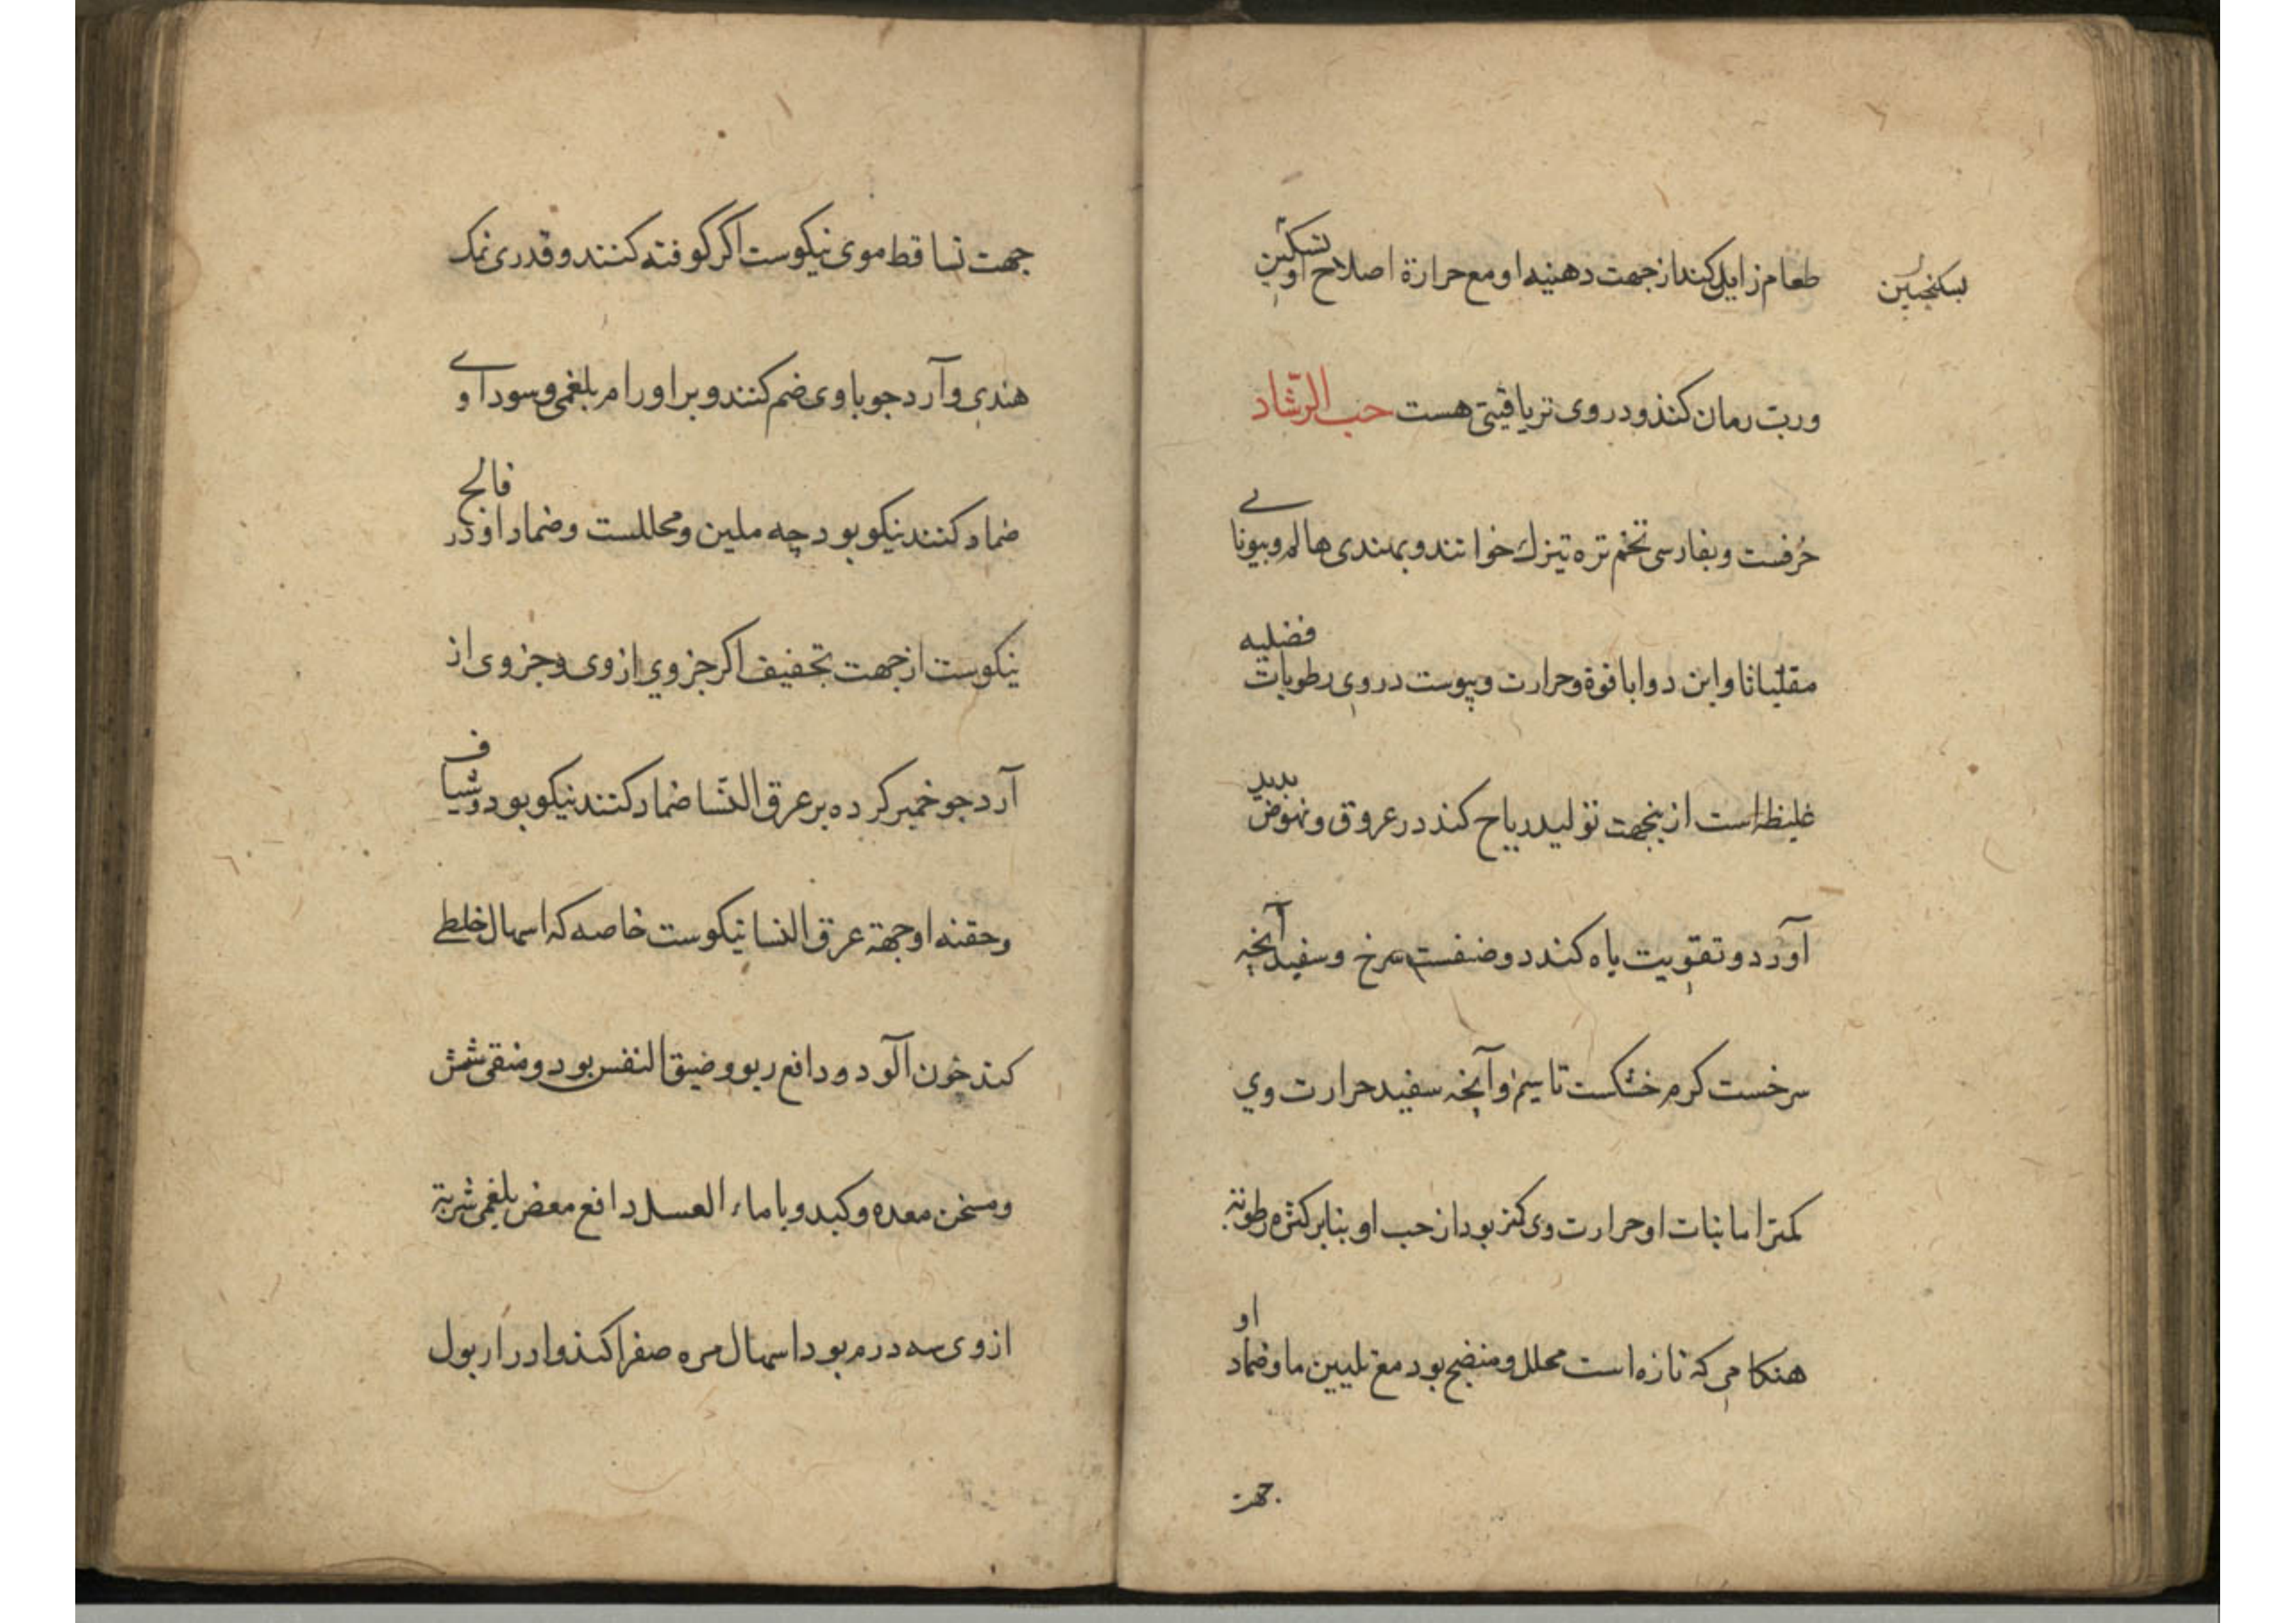 طعام زایل کند از جهت دهنیه او مع حرارة اصلاح او تسکین
بسکنجبین
ورب رمان کند و در وی تریاقیتی هست حب الرّشاد
حُرفست و بفارسی تخم تره تیزك خوانند و بهندی هالم و بیونانے
مقلیاثا و این دوا با قوة و حرارت و یبوست در وی رطوبات فضلیه
غلیظه است ازینجهت تولید ریاح کند در عروق و نهوض بدید
آورد و تقویت باه کند دو صنفست سرخ و سفید آنچه
سرخست کرم خشکست تا سیم و آنچه سفید حرارت وي
کمتر اما نبات او حرارت وی کمتر بود از حب او بنابر کثرة رطوبة
هنکامی که تازه است محلل و منضج بود مع تلیین ما و ضماد او
جهت
جهت تساقط موی نیکوست اکر کوفته کنند و قدری نمک
هندی و آرد جو با وی ضم کنند و بر اورام بلغمی و سوداوے
ضماد کنند نیکو بود چه ملین و محللست و ضماد او در فالج
نیکوست از جهت تجفیف اکر جزوي از وی و جزوی از
آرد جو خمیر کرده بر عرق النّسا ضماد کنند نیکو بود و شیاف
و حقنه او جهة عرق النسا نیکوست خاصه که اسهال خلطے
کند خون آلود و دافع ربو و ضیق النفس بود و منقی شش
و مسخن معده و کبد و با ماء العسل دافع مغص بلغمی شربة
از وی سه درم بود اسهال مره صفرا کند و ادرار بول